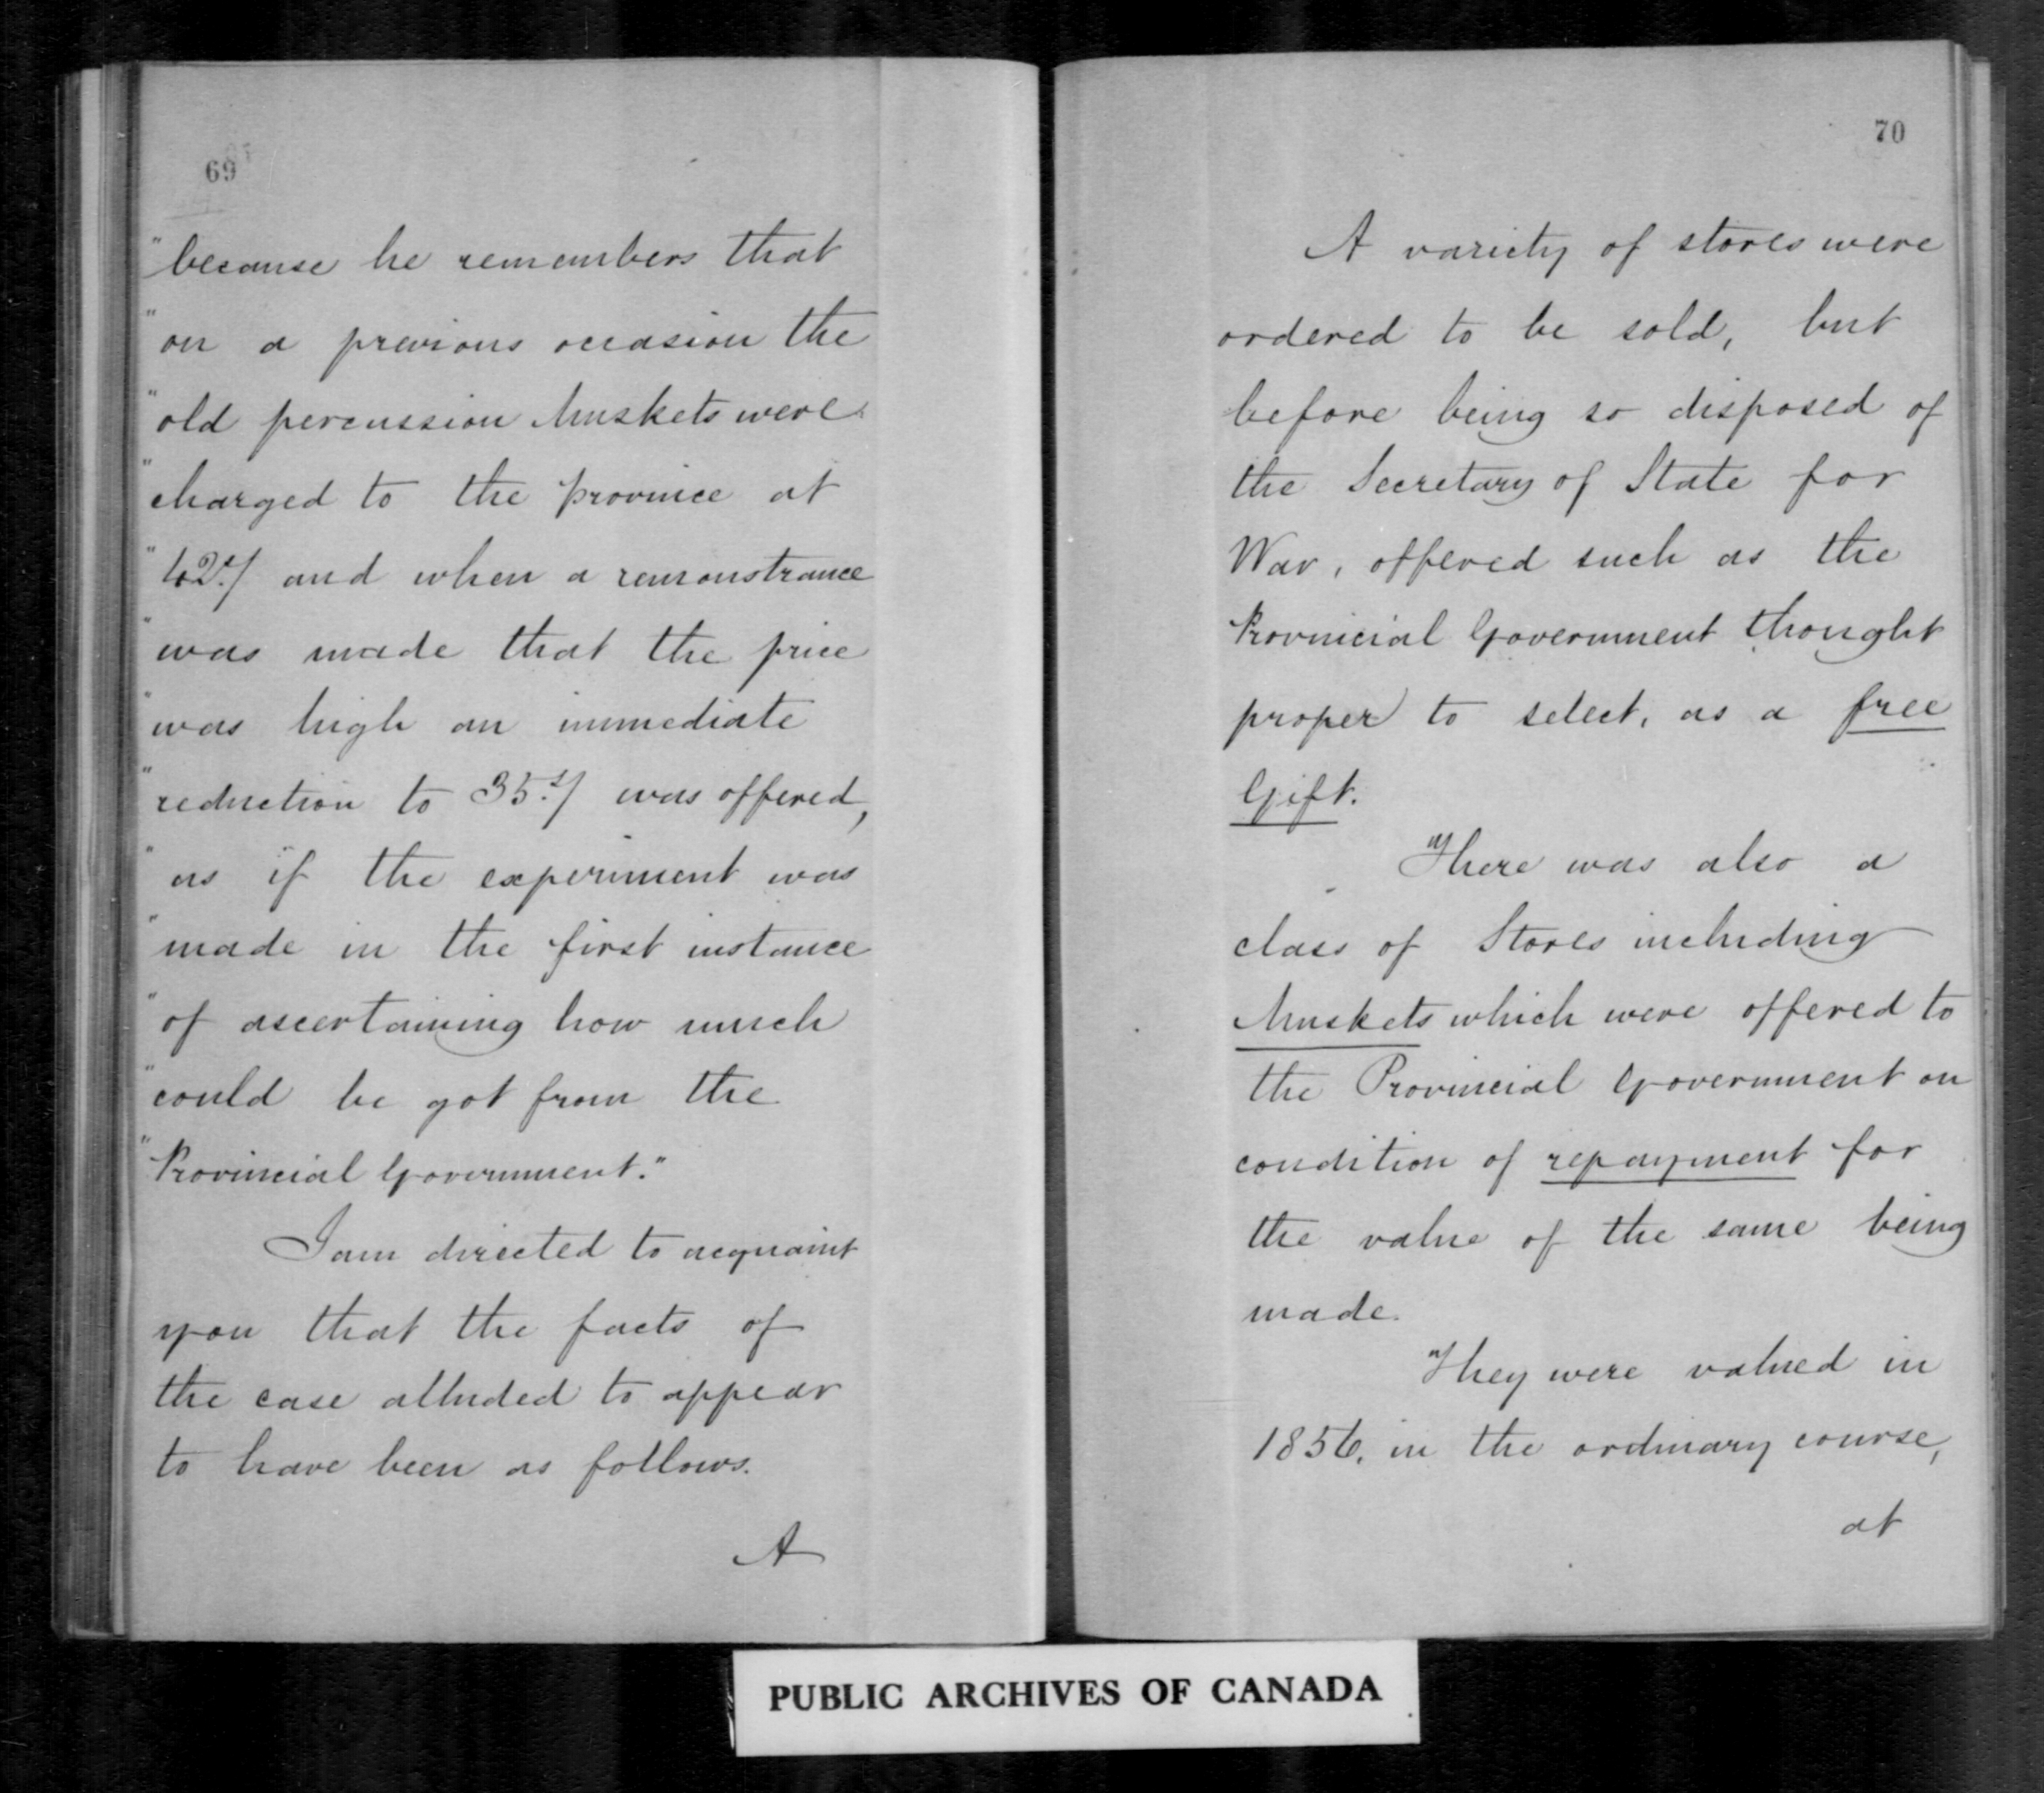 69
"because he remembers that
"on a previous occasion the
"old percussion Muskets were
"charged to the province at
"42s/ and when a remonstrance
"was made that the price
"was high an immediate
"reduction to 35s/ was offered,
"as if the experiment was
"made in the first instance
"of ascertaining how much
"could be got from the
"Provincial Government."
I am directed to acquaint
you that the facts of
the case alluded to appear
to have been as follows.
A
70
A variety of stores were
ordered to be sold, but
before being so disposed of
the Secretary of State for
War, offered such as the
Provincial Government thought
proper to select, as a free
Gift.
There was also a
class of Stores including
Muskets which were offered to
the Provincial Government on
condition of repayment for
the value of the same being
made.
They were valued in
1856, in the ordinary course,
at
PUBLIC ARCHIVES OF CANADA